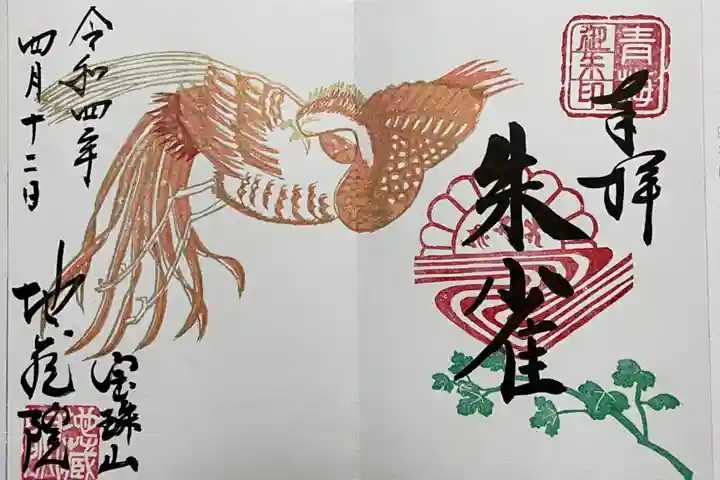 青梅
御朱印
奉拝
朱雀
令和四年
四月十二日
宝珠山
地蔵院
地蔵